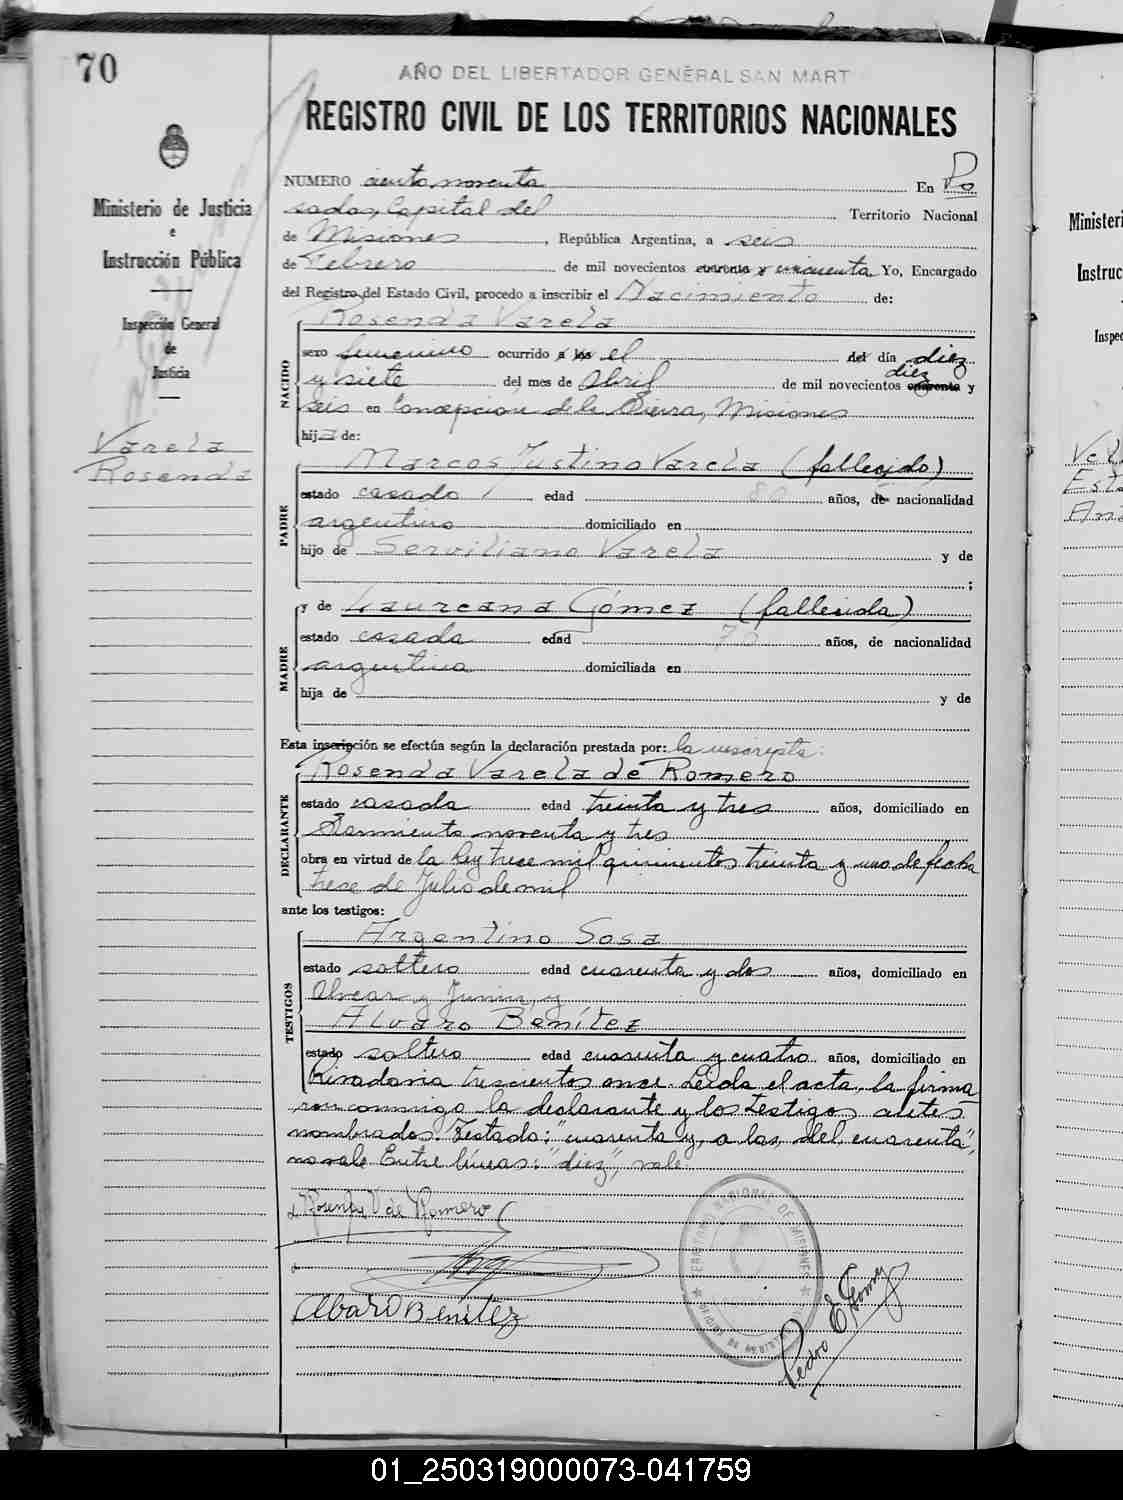 70
AÑO DEL LIBERTADOR GENERAL SAN MART
REGISTRO CIVIL DE LOS TERRITORIOS NACIONALES
Ministerio de Justicia
e
Instrucción Pública
Inspección General
de
Justicia
Varela
Rosenda
NUMERO ciento noventa En Po
sadas, Capital del Territorio Nacional
de Misiones, República Argentina, a seis
de Febrero de mil novecientos cuarenta y cincuenta Yo, Encargado
del Registro del Estado Civil, procedo a inscribir el Nacimiento de:
NACIDO
Rosenda Varela
sexo femenino ocurrido a las el del día diez
y siete del mes de Abril de mil novecientos cuarenta diez y
seis en Concepción de la Sierra, Misiones
hija de:
PADRE
Marcos Justino Varela (fallecido)
estado casado edad 80 años, de nacionalidad
argentino domiciliado en
hijo de Serviliano Varela y de
;
MADRE
y de Laureana Gómez (fallecida)
estado casada edad años, de nacionalidad
argentina domiciliada en
hija de y de
Esta inscripción se efectúa según la declaración prestada por: la inscripta:
DECLARANTE
Rosenda Varela de Romero
estado casada edad treinta y tres años, domiciliado en
Sarmiento noventa y tres
obra en virtud de la Ley trece mil quinientos treinta y uno de fecha
trece de Julio de mil
ante los testigos:
TESTIGOS
Argentino Sosa
estado soltero edad cuarenta y dos años, domiciliado en
Alvear y Junin, y
Alvaro Benítez
estado soltero edad cuarenta y cuatro años, domiciliado en
Rivadavia trescientos once. Leída el acta, la firma
con conmigo la declarante y los testigos antes
nombrados. Testado: "cuarenta y, a las, del, cuarenta",
no vale. Entre líneas: "diez", vale.
Rosenda V de Romero
Alvaro Benitez
TERRITORIO NACIONAL DE MISIONES
Pedro E. Gomez
Ministeri
Instruc
Inspec
01_250319000073-041759